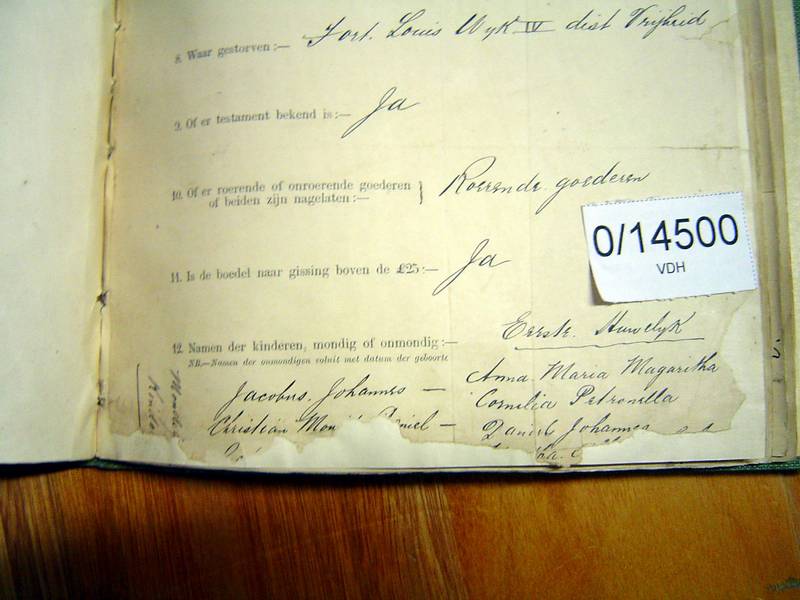 8. Waar gestorven:— Fort. Louis Wyk IV dist Vrijheid
9. Of er testament bekend is:— Ja
10. Of er roerende of onroerende goederen
of beiden zijn nagelaten:— } Roerende goederen
0/14500
VDH
11. Is de boedel naar gissing boven de £25:— Ja
12. Namen der kinderen, mondig of onmondig:— Eerste. Huwelyk
NB.—Namen der onmondigen voluit met datum der geboorte
Jacobus. Johannes — Anna. Maria Magaritha
Christian — Cornilia Petronella
Daniel Johannes